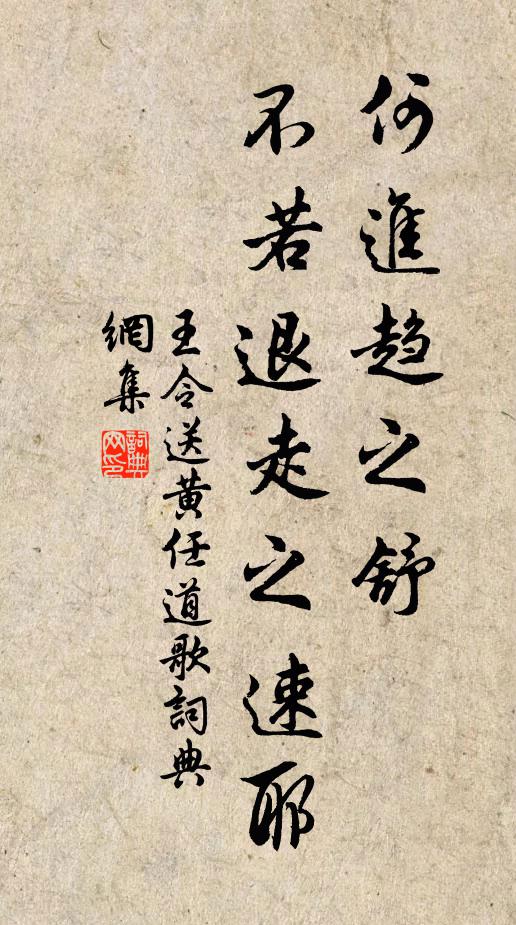 何進趋之舒
不若退走之速耶
王令送黄任道歌詞典
網集
詞典
网印